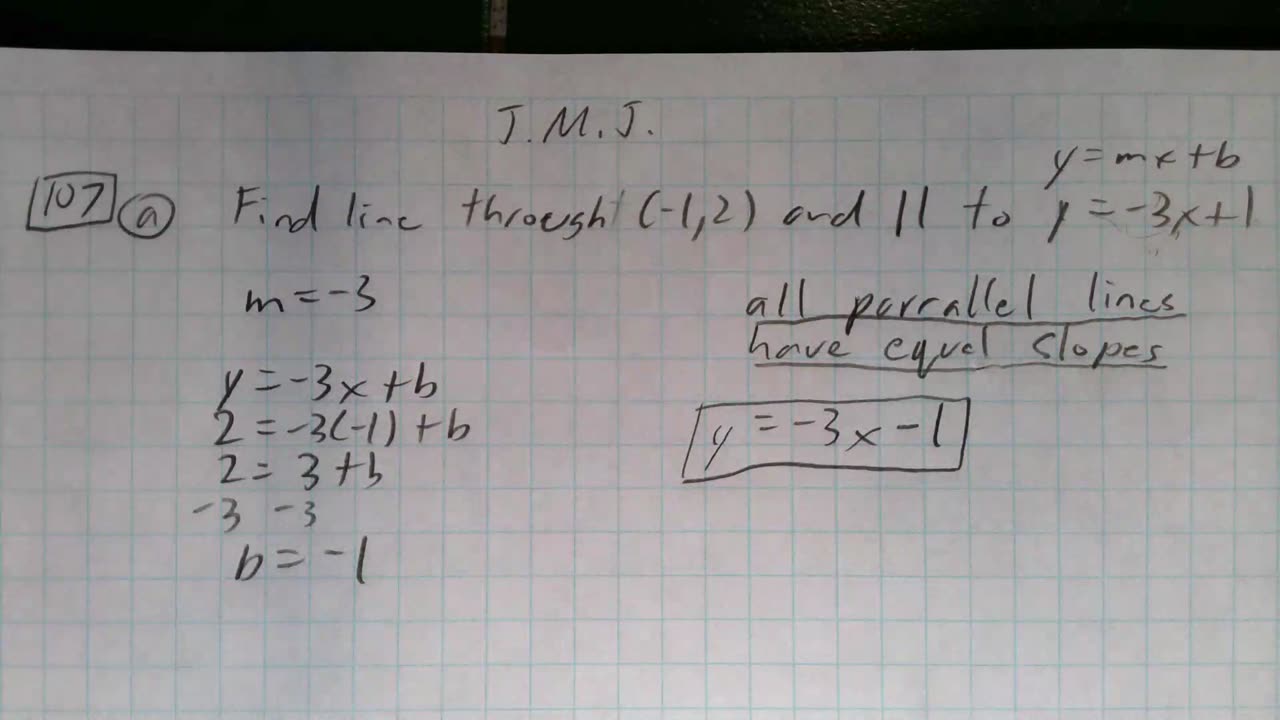 J.M.J.
y=mx+b
107 a Find line through (-1,2) and || to y=-3x+1
m=-3
all parrallel lines
have equal slopes
y=-3x+b
2=-3(-1)+b
2=3+b
-3 -3
b=-1
y=-3x-1